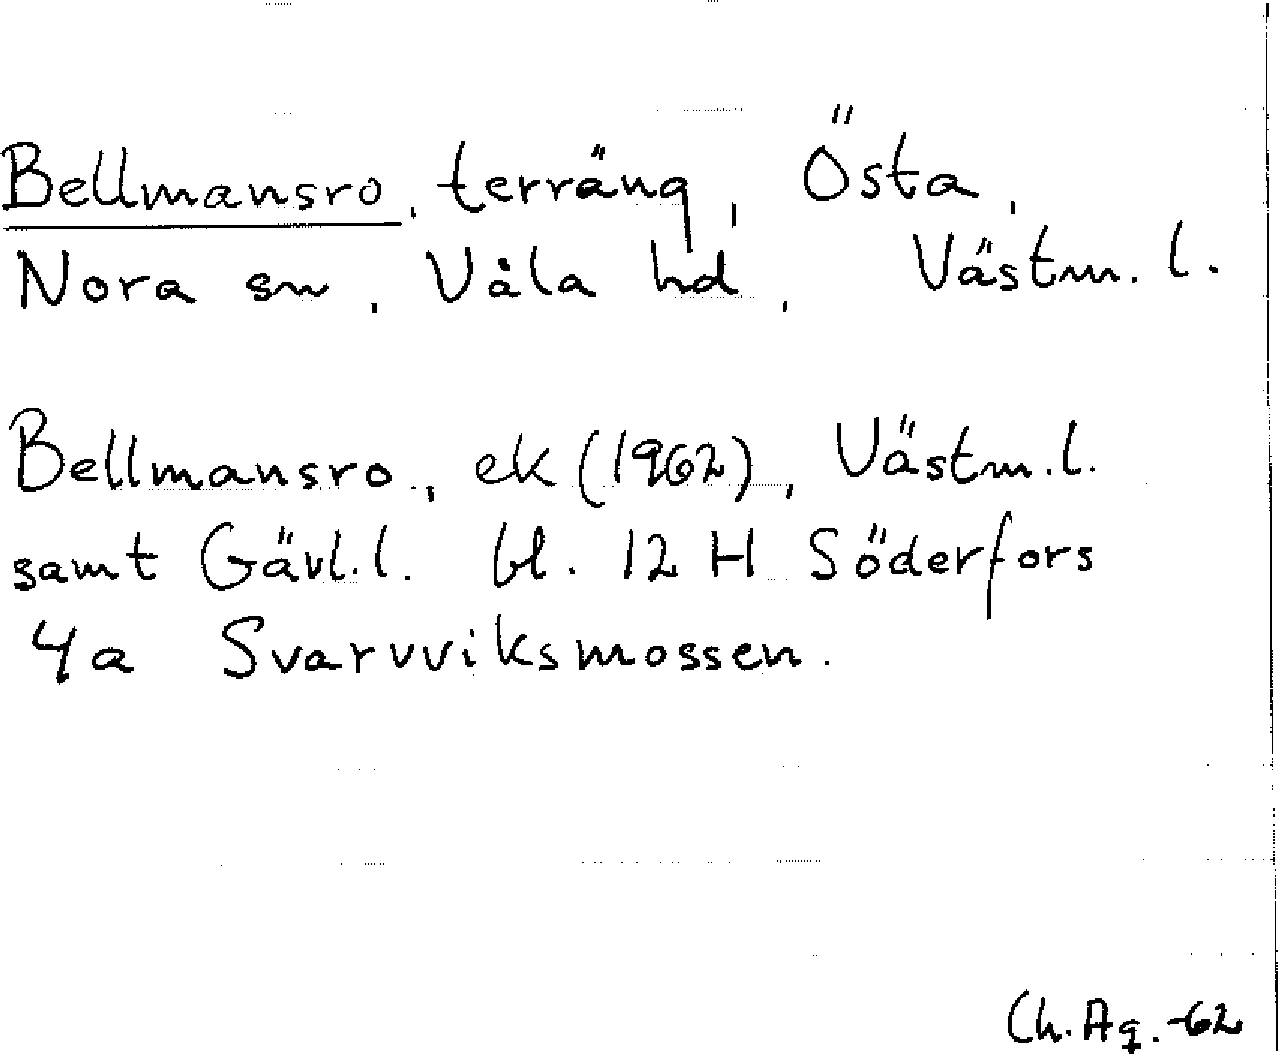 Bellmansro, terräng, Östa,
Nora sn, Våla hd, Västm. l.
Bellmansro, ek (1962), Västm. l.
samt Gävl. l. bl. 12 H Söderfors
4a Svarvviksmossen.
Ch. Ag. -62